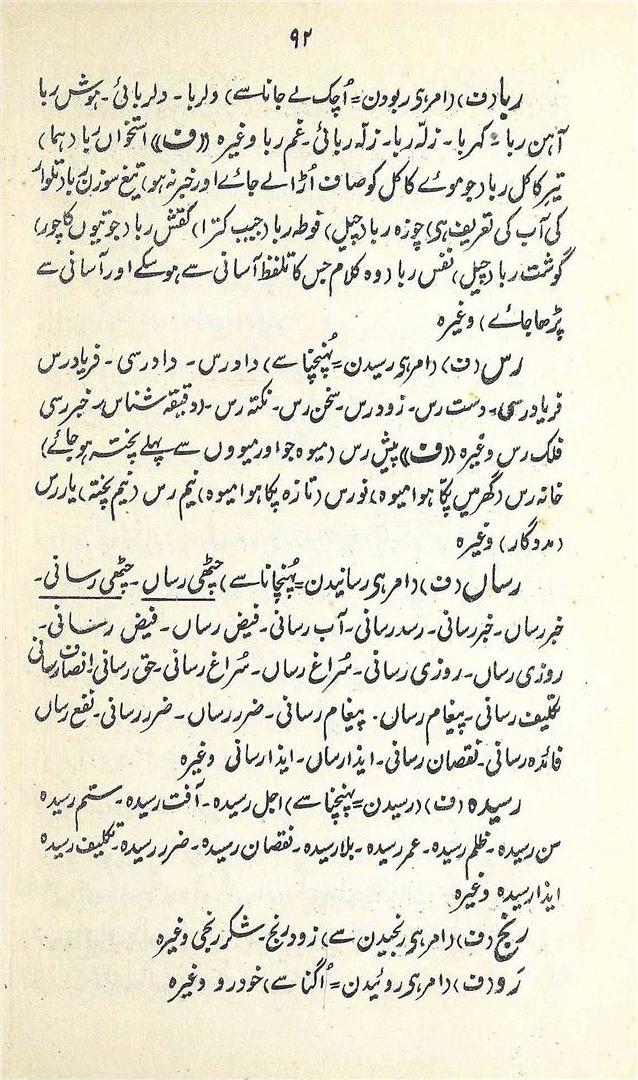 ۹۲
ربا (ف) (امر ہی ربودن = اُچک لے جانا سے) دلربا ۔ دلربائی ۔ ہوش ربا
آہن ربا ۔ کہربا ۔ زلّہ ربا ۔ زلّہ ربائی ۔ غم ربا وغیرہ ((ف)) استخواں ربا (ہما)
تیر کاکل ربا (جو موے کاکل کو صاف اُڑا لے جائے اور خبر نہ ہو) تیغ سوزن ربا (تلوار
کی آب کی تعریف ہی) چوزہ ربا (چیل) فوطہ ربا (جیب کترا) کفش ربا (جوتیوں کا چور)
گوشت ربا (چیل) نفس ربا (وہ کلام جس کا تلفظ آسانی سے ہو سکے اور آسانی سے
پڑھا جائے) وغیرہ
رس (ف) (امر ہی رسیدن = پُہنچنا سے) داورس ۔ داورسی ۔ فریاد رس
فریاد رسی ۔ دست رس ۔ زود رس ۔ سخن رس ۔ نکتہ رس ۔ (دقیقہ شناس) ۔ خبر رسی
فلک رس وغیرہ ((ف)) پیش رس (میوہ جو اور میووں سے پہلے پختہ ہو جائے)
خانہ رس (گھر میں پکّا ہوا میوہ) نورس (تازہ پکا ہوا میوہ) نیم رس (نیم پختہ) یار رس
(مددگار) وغیرہ
رساں (ف) (امر ہی رسانیدن = پُہنچانا سے) چٹھی رساں ۔ چٹھی رسانی ۔
خبر رساں ۔ خبر رسانی ۔ رسد رسانی ۔ آب رسانی ۔ فیض رساں ۔ فیض رسانی ۔
روزی رساں ۔ روزی رسانی ۔ سُراغ رساں ۔ سُراغ رسانی ۔ حق رسانی ۔ انصاف رسانی
تکلیف رسانی ۔ پیغام رساں ۔ پیغام رسانی ۔ ضرر رساں ۔ ضرر رسانی ۔ نفع رساں
فائدہ رسانی ۔ نقصان رسانی ۔ ایذا رساں ۔ ایذا رسانی وغیرہ
رسیدہ (ف) (رسیدن = پہنچنا سے) اجل رسیدہ ۔ آفت رسیدہ ۔ ستم رسیدہ
سن رسیدہ ۔ ظلم رسیدہ ۔ عمر رسیدہ ۔ بلا رسیدہ ۔ نقصان رسیدہ ۔ ضرر رسیدہ ۔ تکلیف رسیدہ
ایذا رسیدہ وغیرہ
رنج (ف) (امر ہی رنجیدن سے) زود رنج ۔ شکر رنجی وغیرہ
رَو (ف) (امر ہی روئیدن = اُگنا سے) خود رو وغیرہ